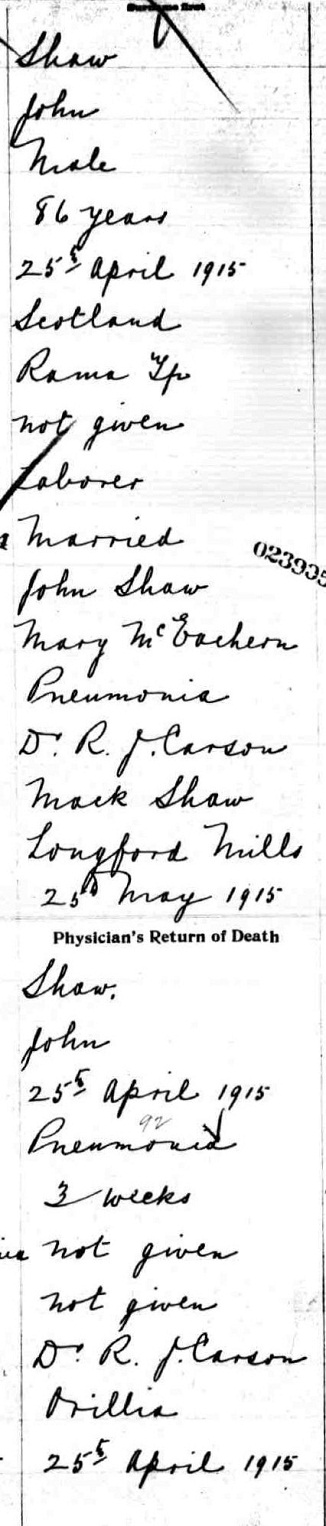 Surname first
Shaw
John
Male
86 years
25th April 1915
Scotland
Rama Tp
not given
Laborer
Married
023935
John Shaw
Mary McEachern
Pneumonia
Dr. R. J. Carson
Mack Shaw
Longford Mills
25th May 1915
Physician's Return of Death
Shaw.
John
25th April 1915
92
Pneumonia
3 weeks
not given
not given
Dr. R. J. Carson
Orillia
25th April 1915